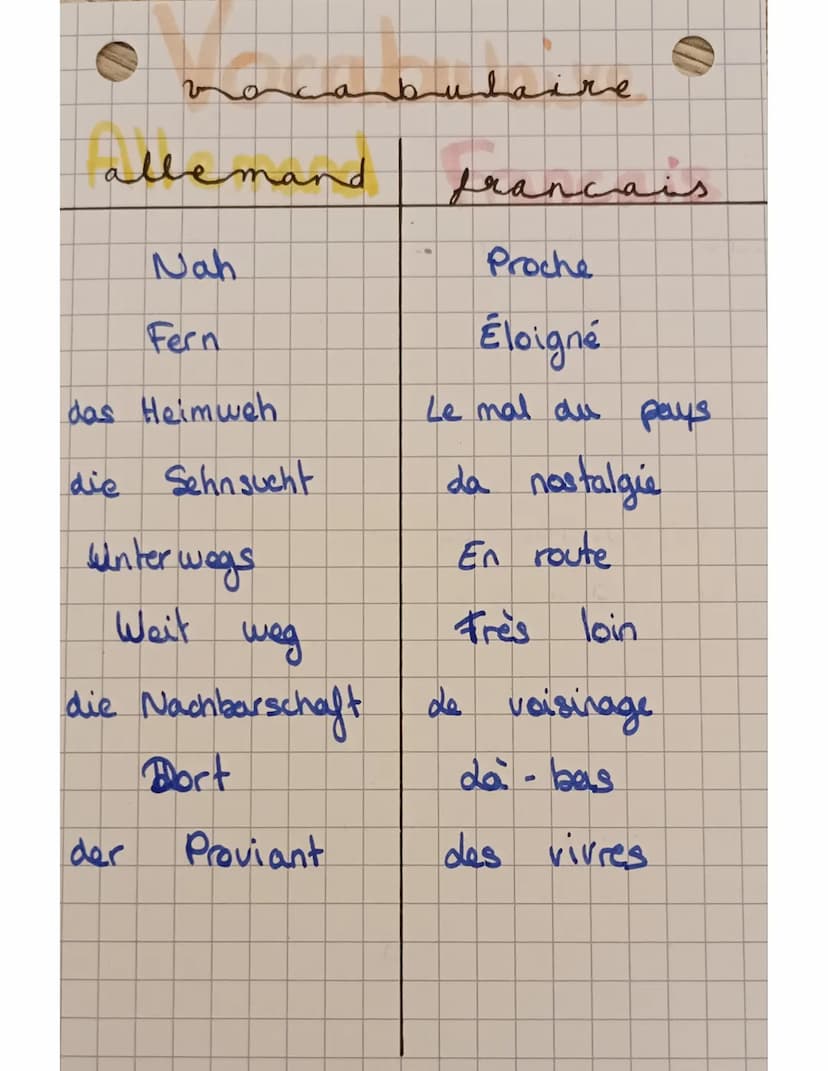 Vocabulaire
vocabulaire
Allemand Francais
allemand francais
Nah Proche
Fern Éloigné
das Heimweh Le mal du pays
die Sehnsucht La nostalgie
Unterwegs En route
Weit weg Très loin
die Nachbarschaft Le voisinage
Dort Là-bas
der Proviant des vivres